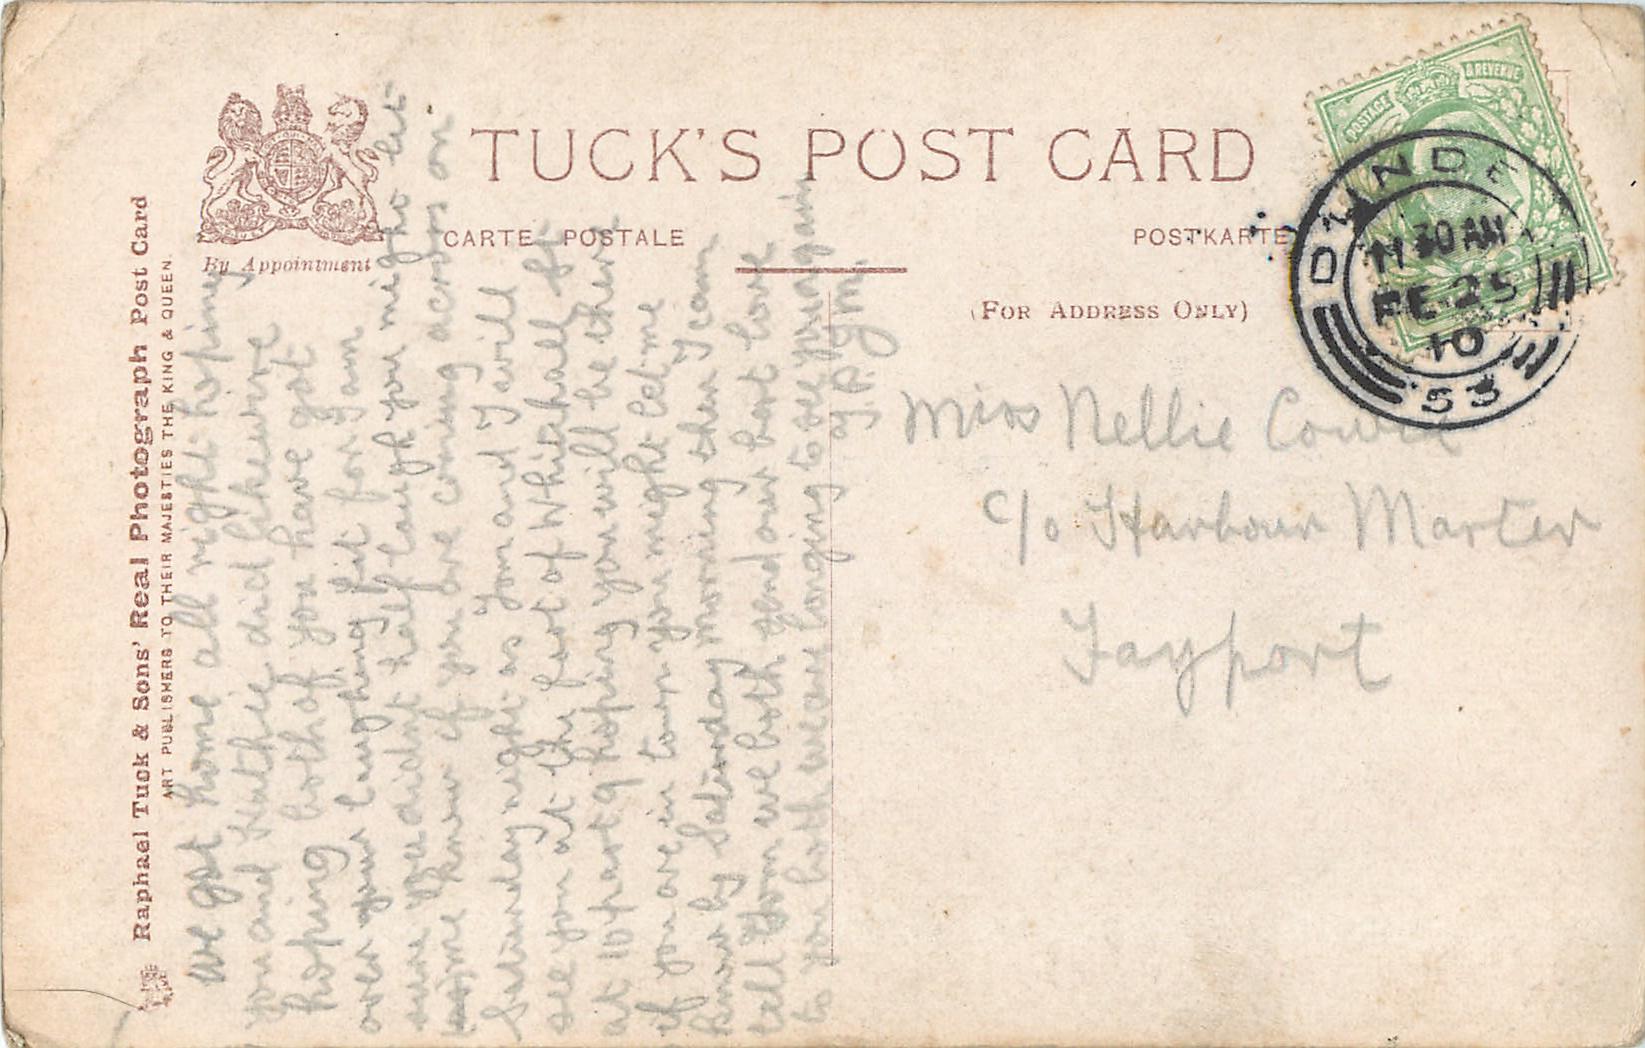 TUCK'S POST CARD
CARTE POSTALE
POSTKARTE
(FOR ADDRESS ONLY)
By Appointment
Raphael Tuck & Sons' Real Photograph Post Card
ART PUBLISHERS TO THEIR MAJESTIES THE KING & QUEEN.
POSTAGE & REVENUE
DUNDEE
11 30 AM
FE 25
10
53
Miss Nellie Cowie
c/o Harbour Master
Tayport
we got home all right hoping
you and Kathie did likewise
hoping both of you have got
over your laughing fit for I am
sure you didnt half laugh you might let
me know if you are coming across on
Saturday night as Tom and I will
see you at the foot of Whitehall St
at 10 past 9 hoping you will be there
if you are in town you might let me
know by Saturday morning then I can
tell Tom we both send our best love
to you both we are longing to see you again